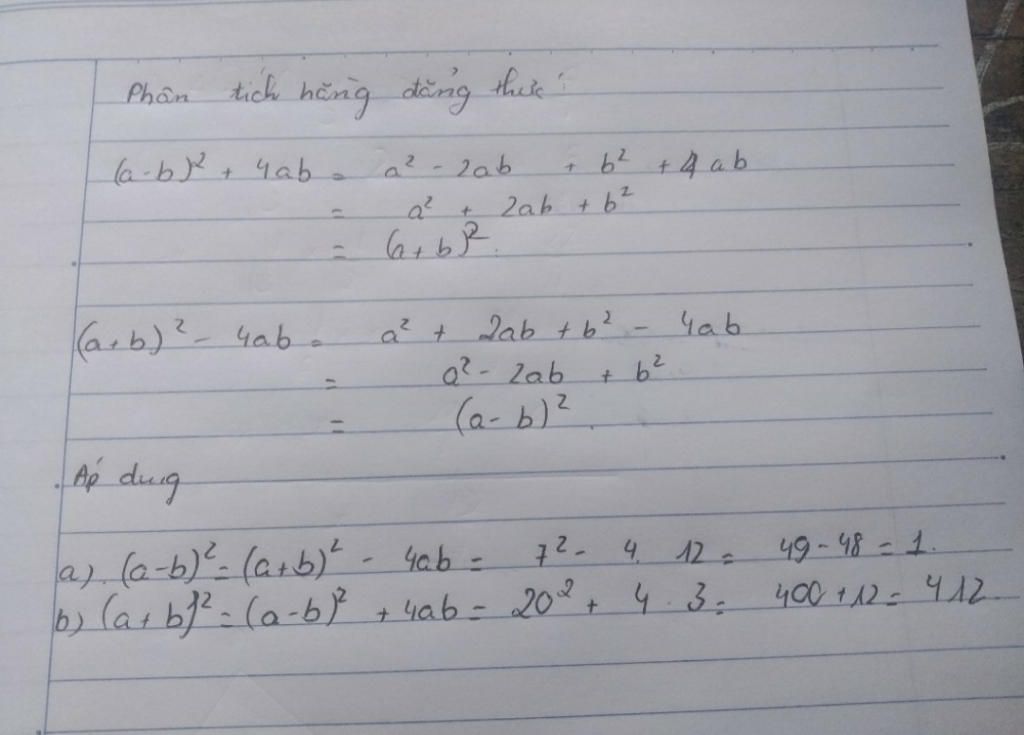 Phân tích hằng đẳng thức:
(a-b)² + 4ab = a² - 2ab + b² + 4ab
= a² + 2ab + b²
= (a+b)².
(a+b)² - 4ab = a² + 2ab + b² - 4ab
= a² - 2ab + b²
= (a-b)².
Áp dung
a). (a-b)² = (a+b)² - 4ab = 7² - 4. 12 = 49 - 48 = 1.
b) (a+b)² = (a-b)² + 4ab = 20² + 4 . 3 = 400 + 12 = 412.